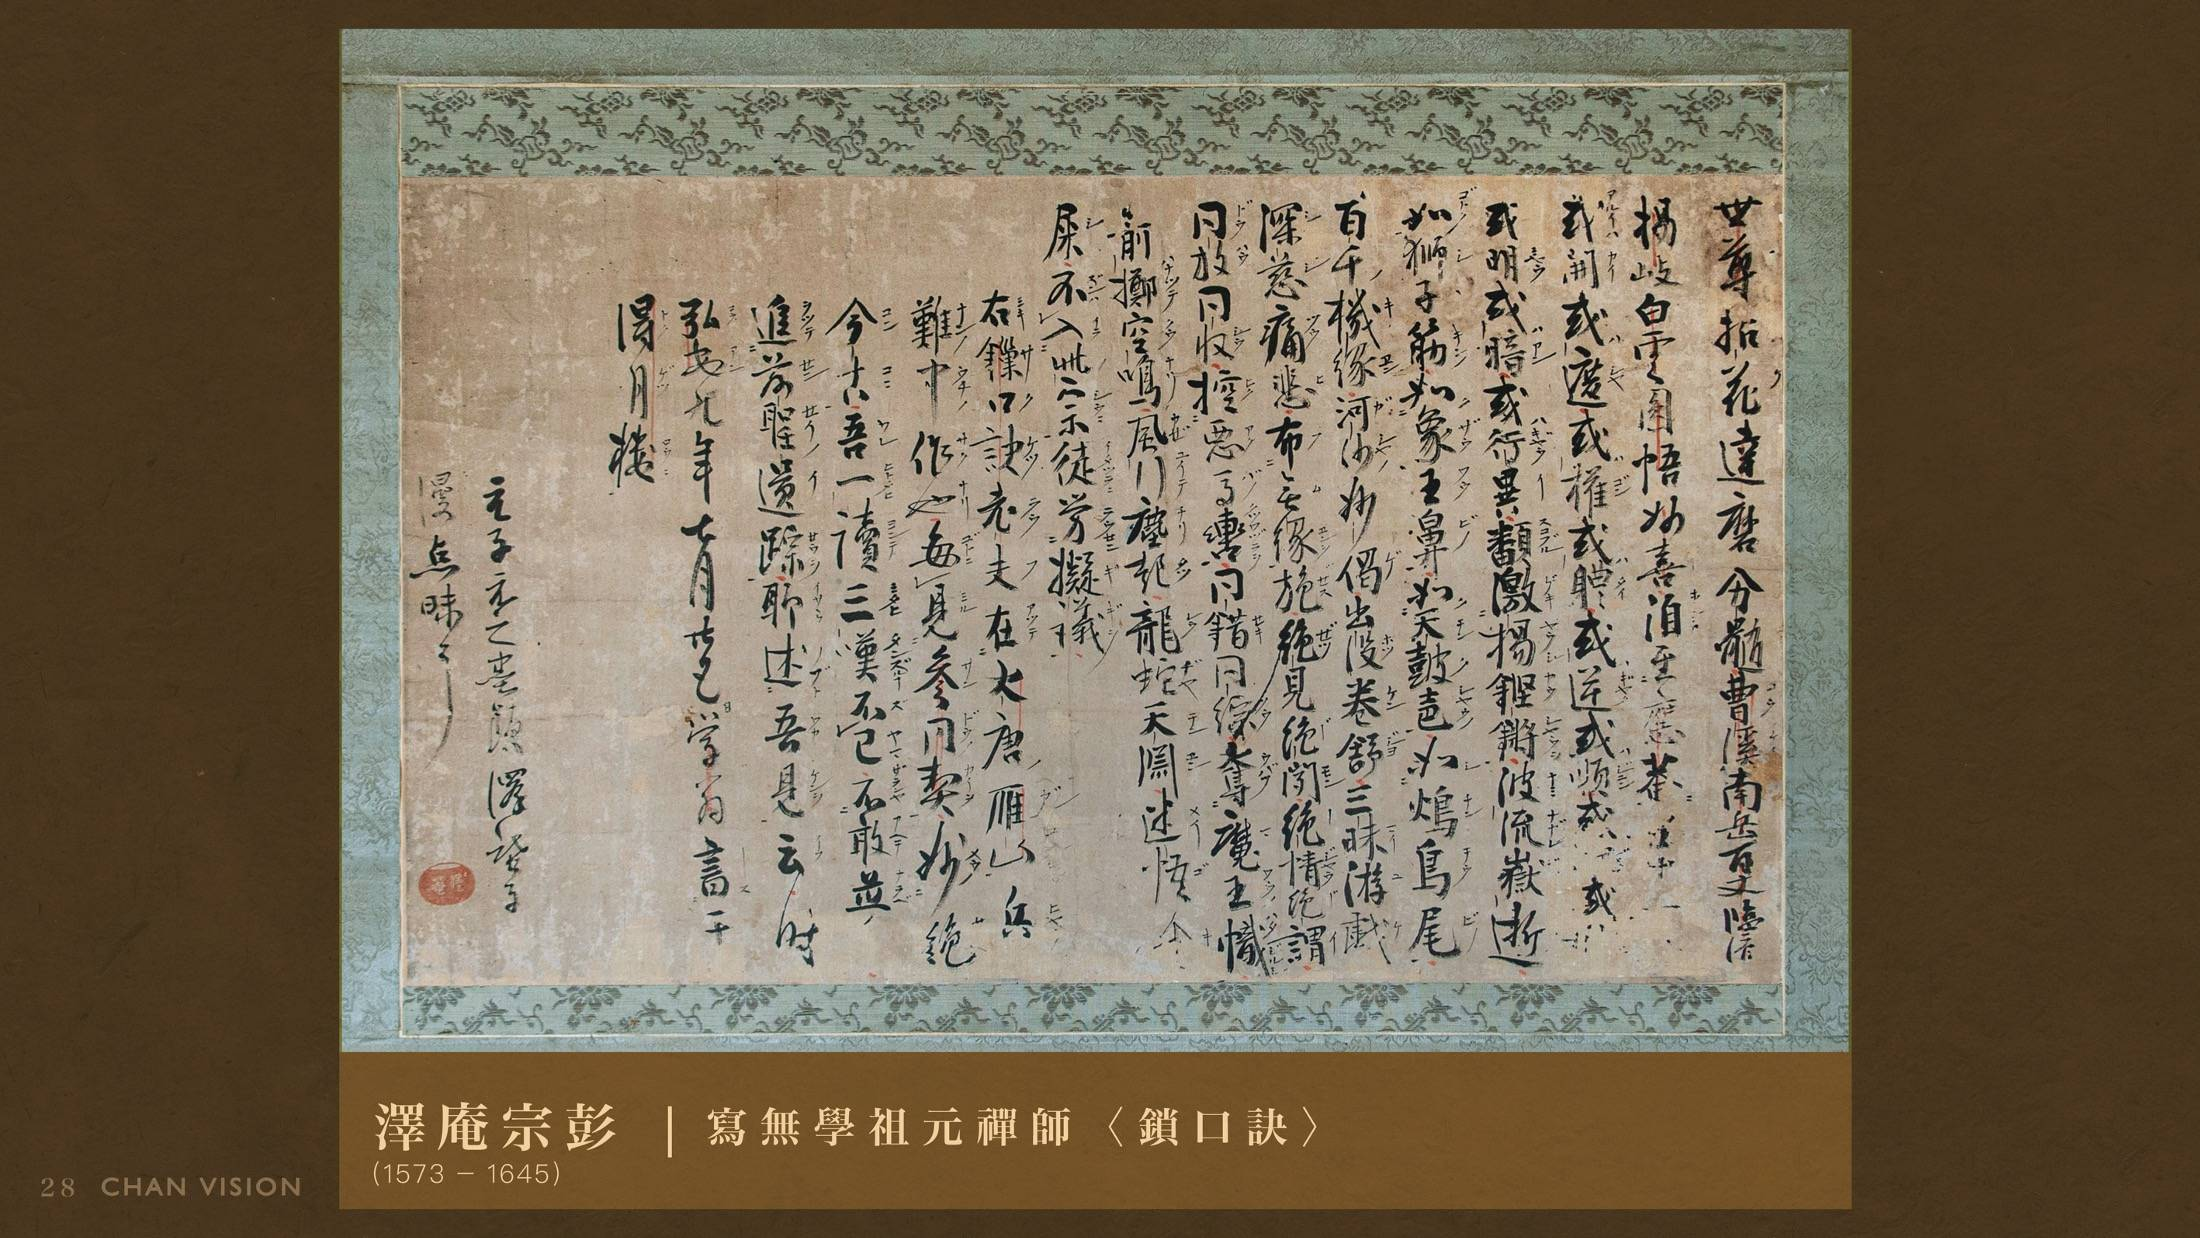 世尊拈花達磨分髓曹溪南岳百丈臨済
楊岐白雲圓悟妙喜洎至應菴
或開或遮或權或體或逆或順或 或
或明或暗或行異類激揚鏗鏘波流嶽逝
如獅子筋如象王鼻如天鼓毒如鴆鳥尾
百千機緣河沙妙偈出沒卷舒三昧游戲
深慈痛悲布無緣施絶見絶聞絶情絶謂
同放同收控惡馬轡同錯同綜奪魔王幟
箭擲空鳴風行塵起龍蛇天淵迷悟
屎不入此宗示徒勞擬議
右鏁口訣老夫在大唐雁山兵
難中作也每見參同契妙絶
今古吾一讀三嘆不已不敢並
進前聖遺踪聊述吾見云時
弘安九年七月廿七日學翁書于
得月樓
漫点昧
澤庵宗彭 | 寫無學祖元禪師〈鎖口訣〉
(1573 – 1645)
28 CHAN VISION